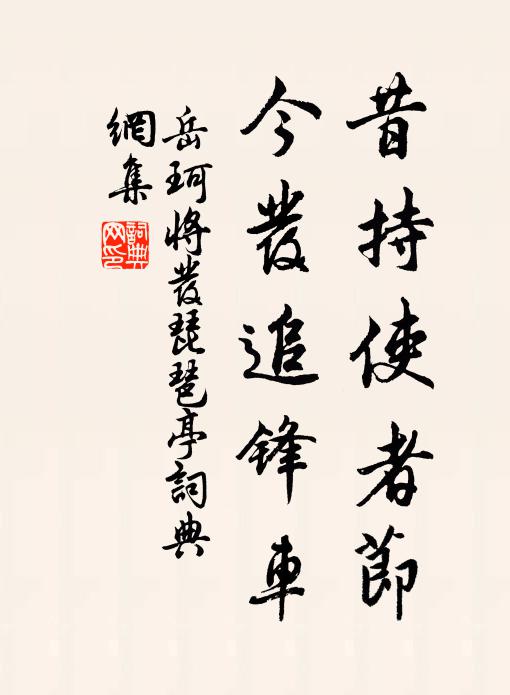 昔持使者節
今發追鋒車
岳珂將發琵琶亭詞典
網集
詞典网印